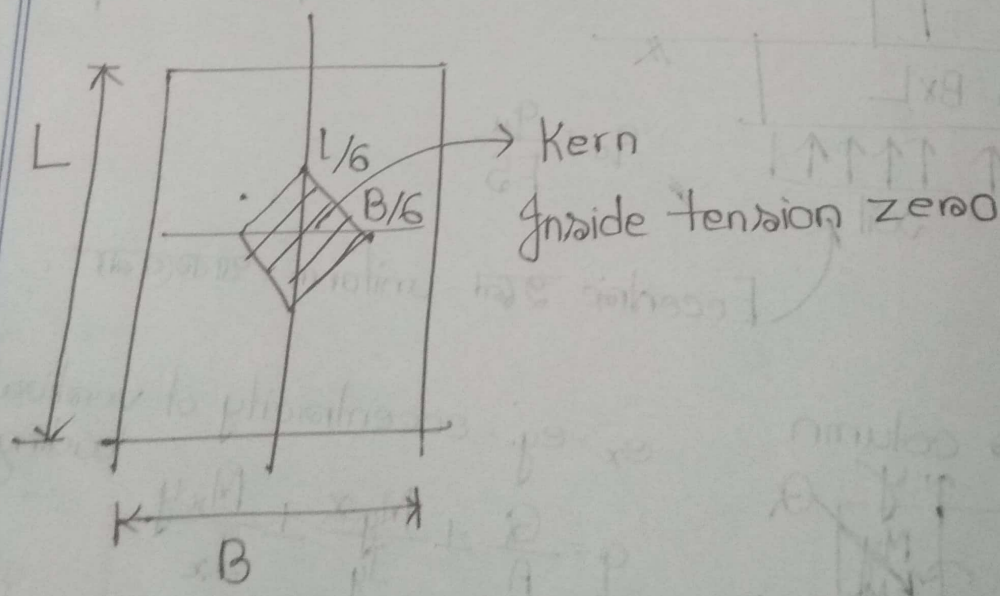 L
L/6
B/6
Kern
Inside tension zero
B